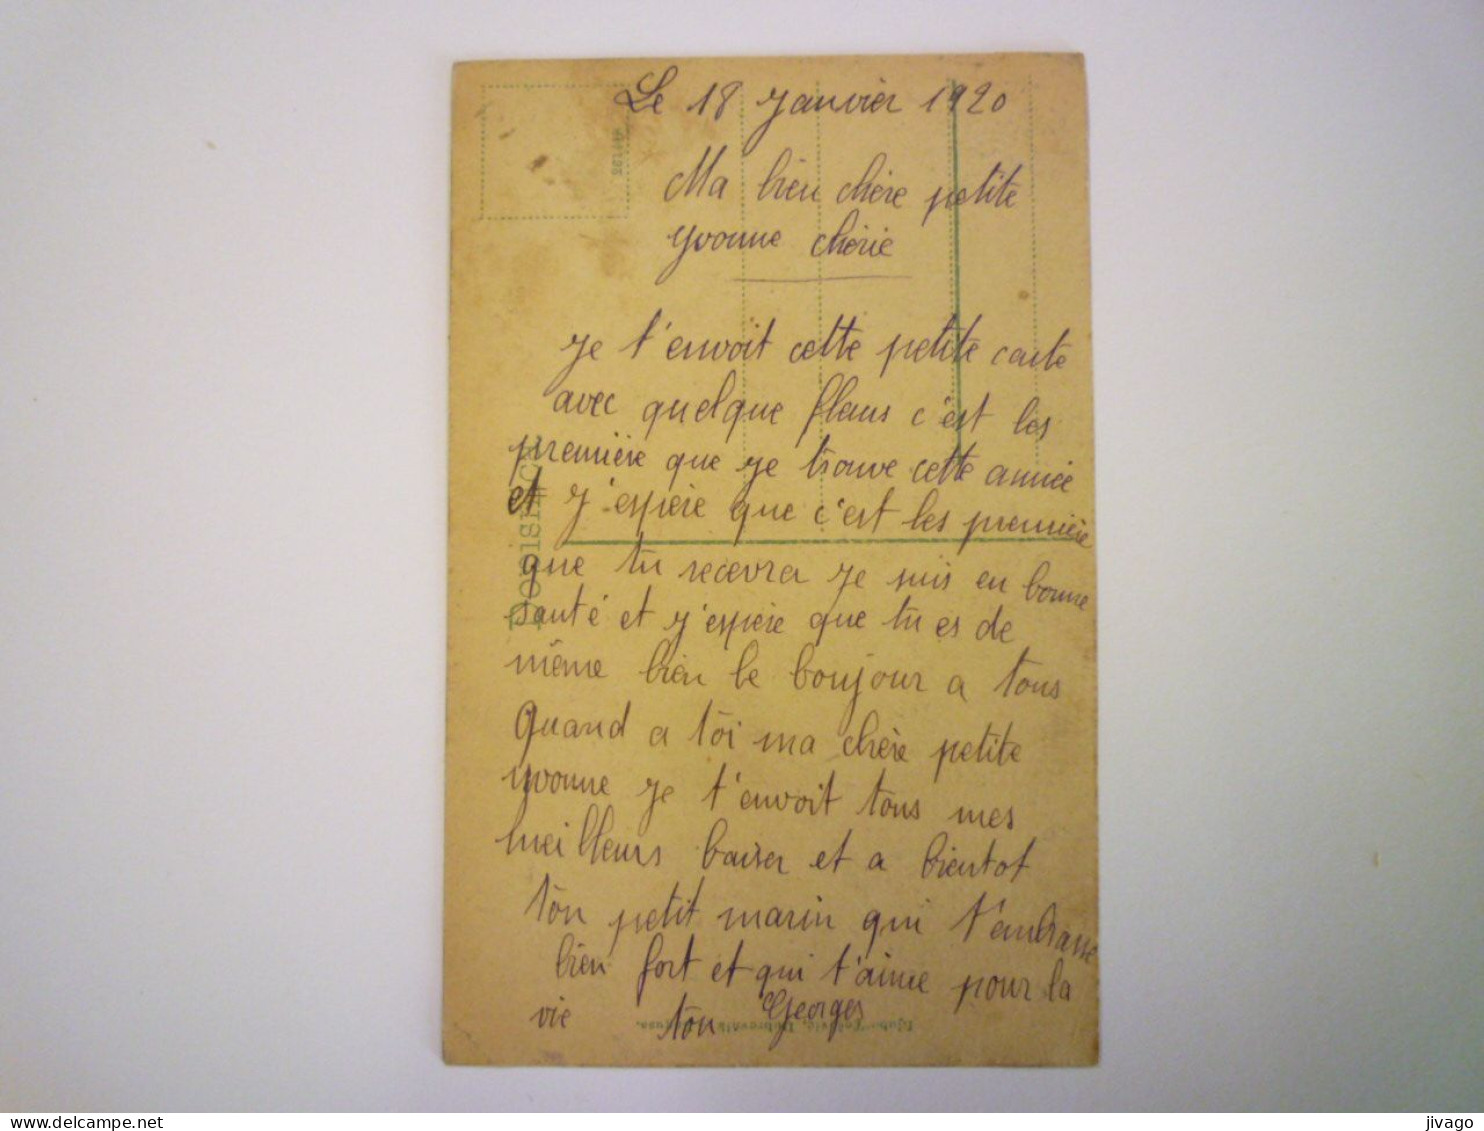 Le 18 Janvier 1920
Ma bien chère petite
Yvonne chérie
Je t'envoit cette petite carte
avec quelque fleurs c'est les
première que je trouve cette année
et j'espère que c'est les première
que tu recevra je suis en bonne
santé et j'espère que tu es de
même bien le boujour a tous
Quand a toi ma chère petite
Yvonne je t'envoit tous mes
meilleurs baiser et a bientot
ton petit marin qui t'embrasse
bien fort et qui t'aime pour la
vie ton Georges
jivago